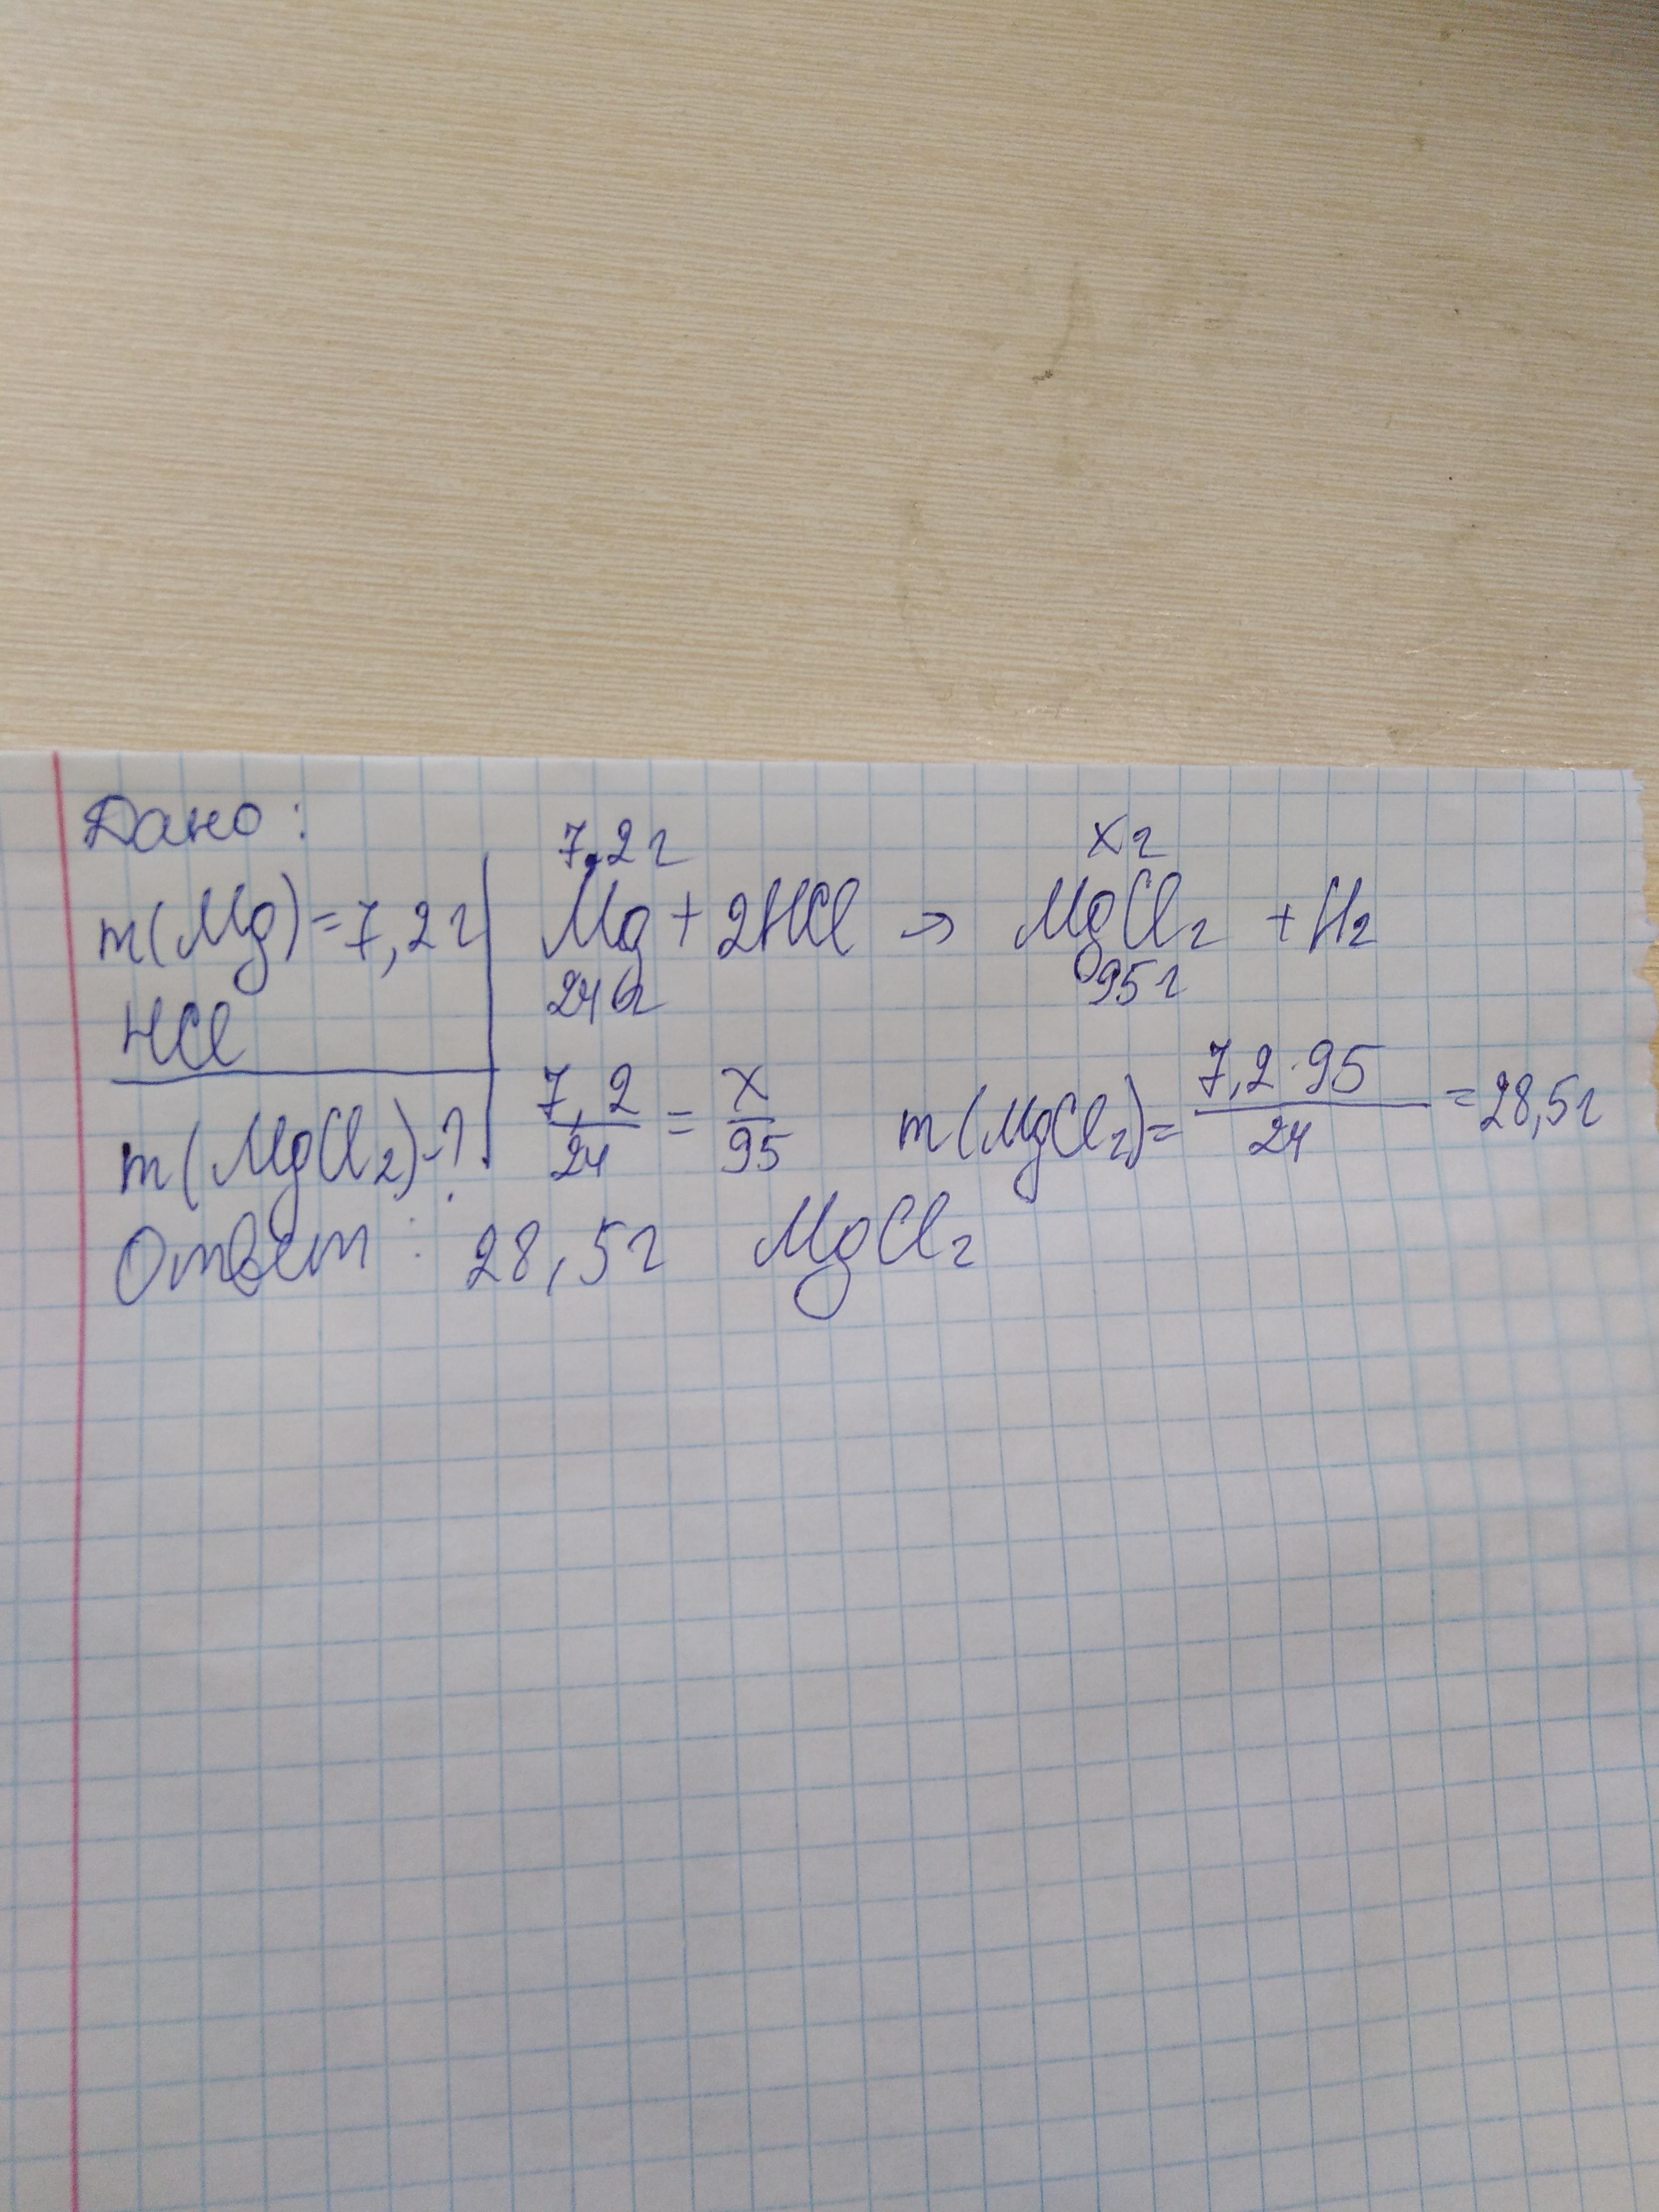 Дано:
m(Mg)=7,2г
HCl
m(MgCl₂)-?
7,2г xг
Mg + 2HCl → MgCl₂ + H₂
24г 95г
7,2/24 = x/95 m(MgCl₂)= 7,2·95/24 =28,5г
Ответ: 28,5г MgCl₂